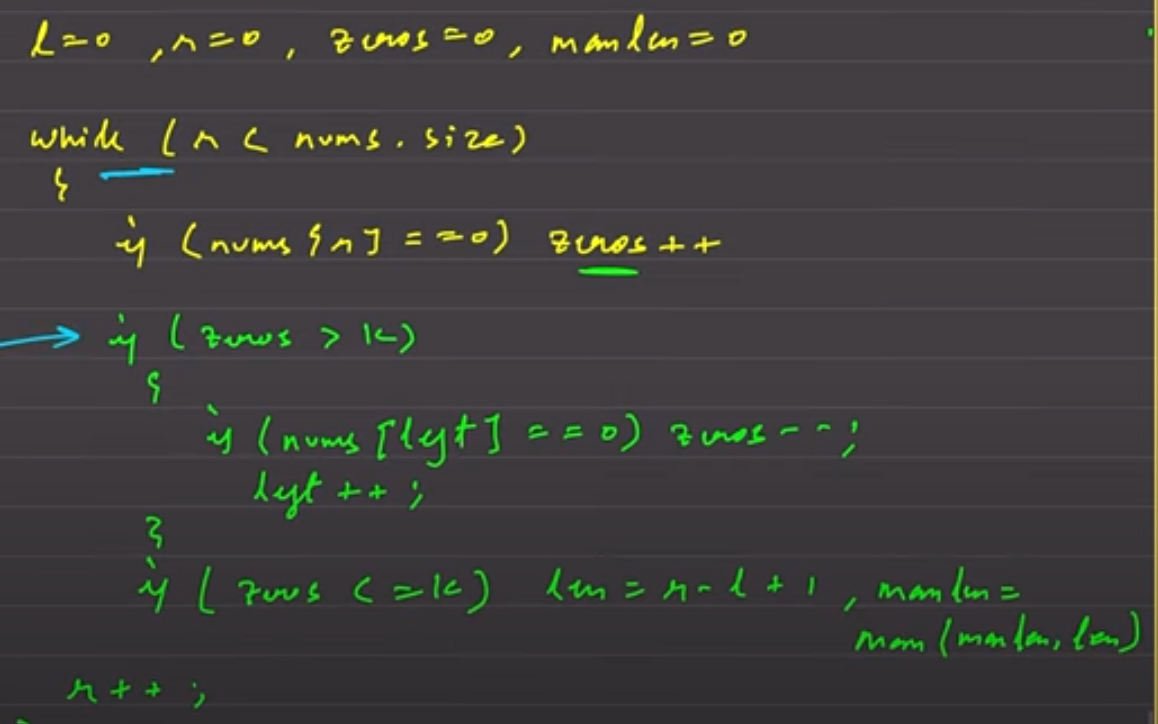 l=0 , r=0 , zeros=0, maxlen=0
while (r < nums.size)
{
if (nums[r] ==0) zeros++
if (zeros > k)
{
if (nums[left] ==0) zeros--;
left++;
}
if (zeros <=k) len = r-l+1 , maxlen=
max(maxlen, len)
r++;